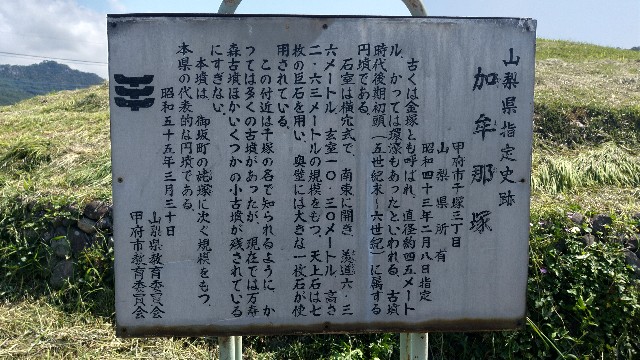 山梨県指定史跡
加牟那塚
甲府市千塚三丁目
山梨県所有
昭和四十三年二月八日指定
古くは金塚とも呼ばれ、直径約四五メート
ル、かつては環濠もあったといわれる、古墳
時代後期初頭(五世紀末―六世紀)に属する
円墳である。
石室は横穴式で、南東に開き、羨道六・三
六メートル、玄室一〇・三〇メートル、高さ
二・六三メートルの規模をもつ。天上石は七
枚の巨石を用い、奥壁には大きな一枚石が使
用されている。
この付近は千塚の名で知られるように、か
つては多くの古墳があったが、現在では万寿
森古墳ほかいくつかの小古墳が残されている
にすぎない。
本墳は、御坂町の姥塚に次ぐ規模をもつ、
本県の代表的な円墳である。
昭和五十五年三月三十日
山梨県教育委員会
甲府市教育委員会